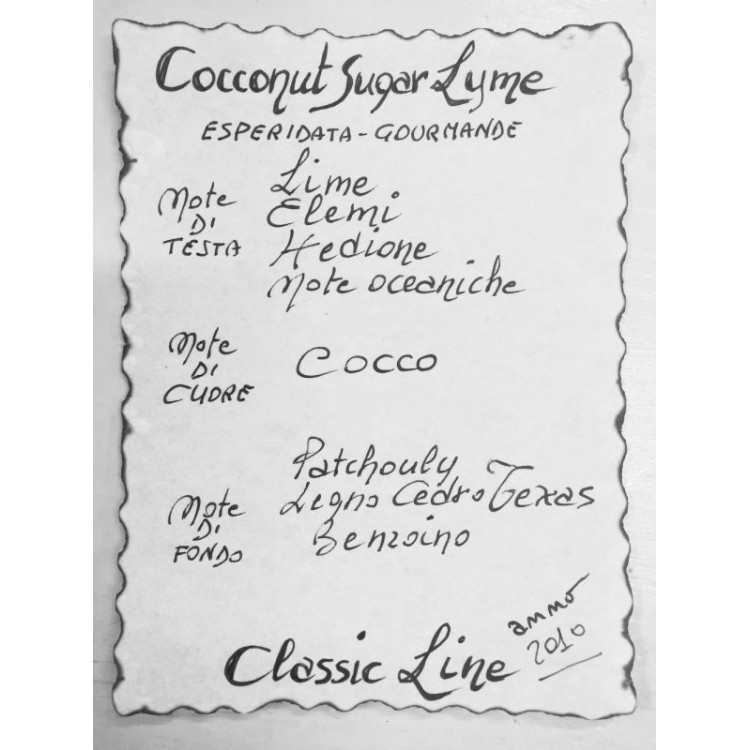 Cocconut Sugar Lyme
ESPERIDATA - GOURMANDE
Note
DI
TESTA
Lime
Elemi
Hedione
Note oceaniche
Note
DI
CUORE
Cocco
Note
DI
FONDO
Patchouly
Legno Cedro Texas
Benzoino
Classic Line
anno
2010